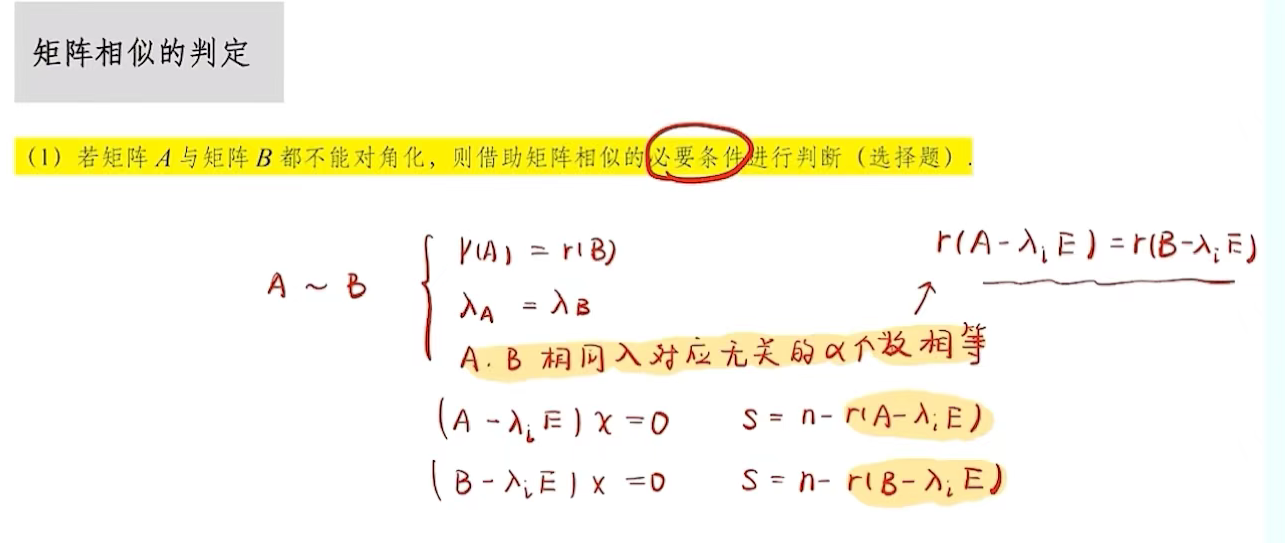 矩阵相似的判定
(1) 若矩阵 A 与矩阵 B 都不能对角化，则借助矩阵相似的必要条件进行判断（选择题）.
r(A) = r(B)
r(A-λᵢE) = r(B-λᵢE)
A ~ B
λA = λB
A. B 相同λ对应无关的α个数相等
(A-λᵢE)x=0 S = n- r(A-λᵢE)
(B-λᵢE)x=0 S = n- r(B-λᵢE)